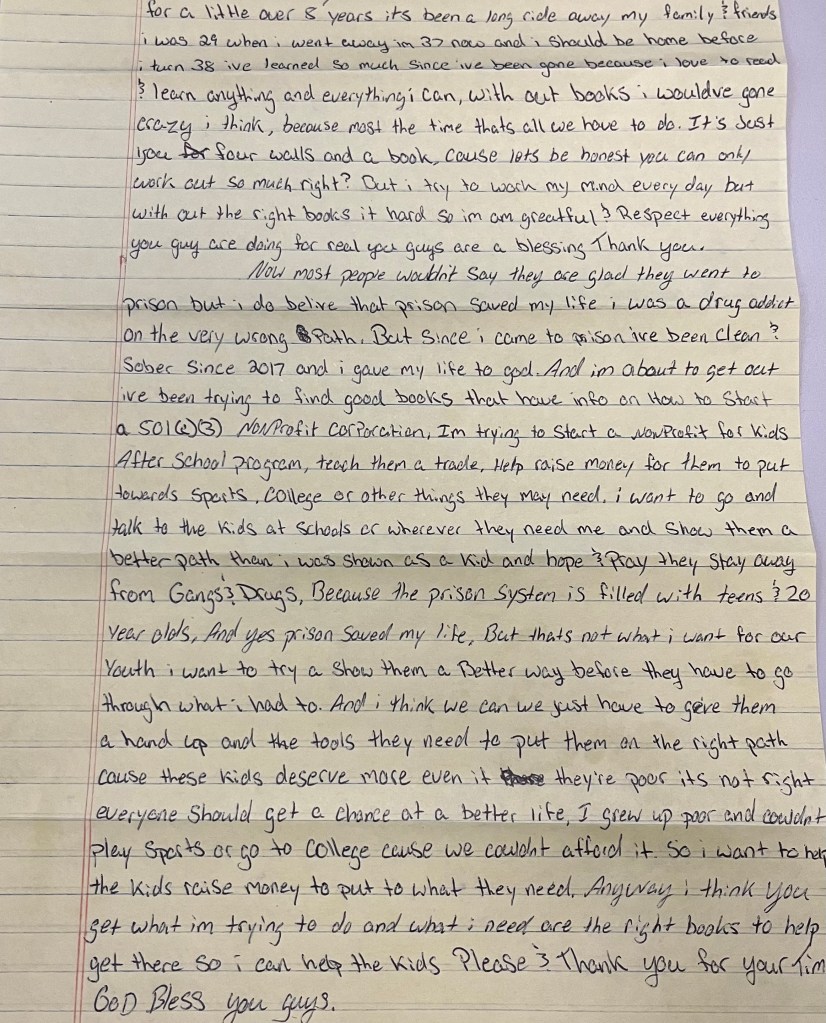 for a little over 8 years its been a long ride away my family & friends
i was 29 when i went away im 37 now and i should be home before
i turn 38 ive learned so much since ive been gone because i love to read
& learn anything and everything i can, with out books i wouldve gone
crazy i think, because most the time thats all we have to do. It's Just
you for four walls and a book, cause lets be honest you can only
work out so much right? But i try to work my mind every day but
with out the right books it hard so im am greatful & Respect everything
you guy are doing for real you guys are a blessing Thank you.
Now most people wouldn't say they are glad they went to
prison but i do belive that prison saved my life i was a drug addict
on the very wrong Path. But since i came to prison ive been clean &
Sober since 2017 and i gave my life to god. And im about to get out
ive been trying to find good books that have info on How to Start
a 501(c)(3) NonProfit Corporation, Im trying to Start a NonProfit for Kids
After School program, teach them a trade, Help raise money for them to put
towards sports, College or other things they may need. i want to go and
talk to the Kids at Schools or wherever they need me and Show them a
better path then i was shown as a Kid and hope & Pray they Stay away
from Gangs & Drugs, Because the prison System is filled with teens & 20
year olds, And yes prison saved my life, But thats not what i want for our
Youth i want to try a Show them a Better way before they have to go
through what i had to. And i think we can we just have to geve them
a hand up and the tools they need to put them on the right path
cause these Kids deserve more even it they're poor its not right
everyone Should get a chance at a better life, I grew up poor and couldnt
Play Sports or go to College cause we couldnt afford it. So i want to help
the Kids raise money to put to what they need. Anyway i think you
get what im trying to do and what i need are the right books to help
get there so i can help the Kids Please & Thank you for your Tim
GOD Bless you guys.